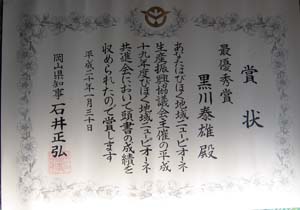 賞状
最優秀賞
黒川泰雄殿
あなたはびほく地域ニューピオーネ
生産振興協議会主催の平成
十九年度びほく地域ニューピオーネ
共進会において頭書の成績を
収められたので賞します
平成二十年一月三十日
岡山県知事 石井正弘